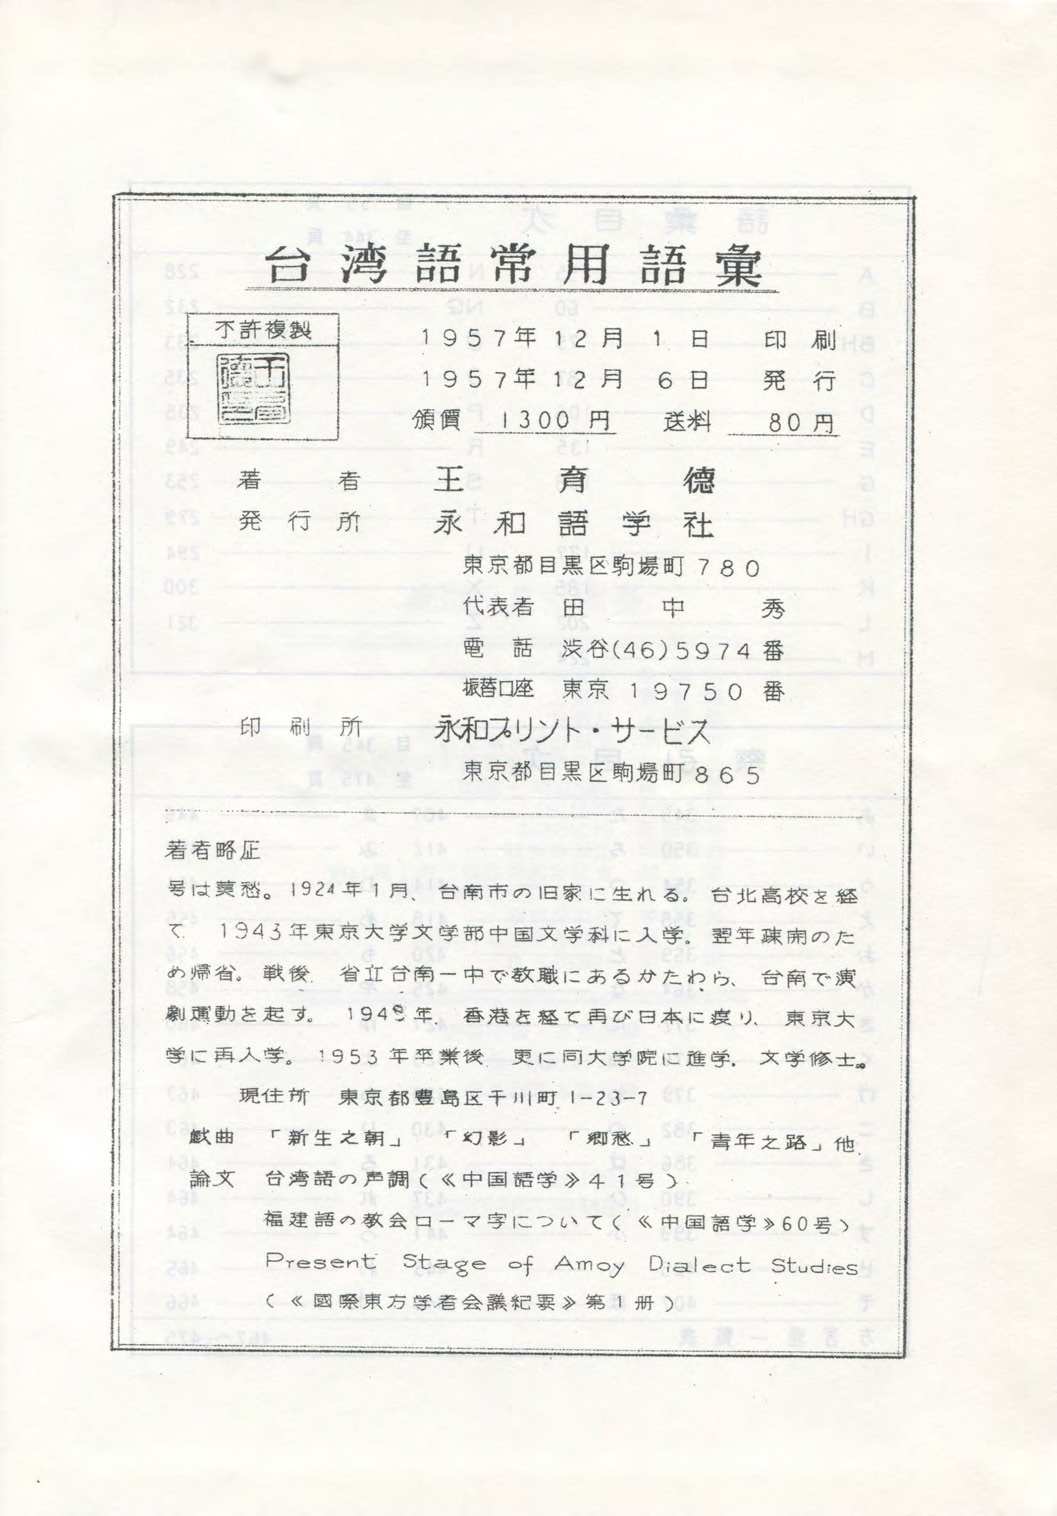 台湾語常用語彙
不許複製
1957年12月1日 印刷
1957年12月6日 発行
頒價 1300円 送料 80円
著者 王育德
発行所 永和語学社
東京都目黒区駒場町780
代表者 田中秀
電話 渋谷(46)5974番
振替口座 東京19750番
印刷所 永和プリント・サービス
東京都目黒区駒場町865
著者略歴
号は莫愁。1924年1月、台南市の旧家に生れる。台北高校を経
て 1943年東京大学文学部中国文学科に入学。翌年疎開のた
め帰省。戦後、省立台南一中で教職にあるかたわら、台南で演
劇運動を起す。194 年、香港を経て再び日本に渡り、東京大
学に再入学。1953年卒業後、更に同大学院に進学。文学修士。
現住所 東京都豊島区千川町1-23-7
戯曲 「新生之朝」 「幻影」 「郷愁」 「青年之路」他
論文 台湾語の声調(《中国語学》41号)
福建語の教会ローマ字について(《中国語学》60号)
Present Stage of Amoy Dialect Studies
(《國際東方学者会議紀要》第1册)